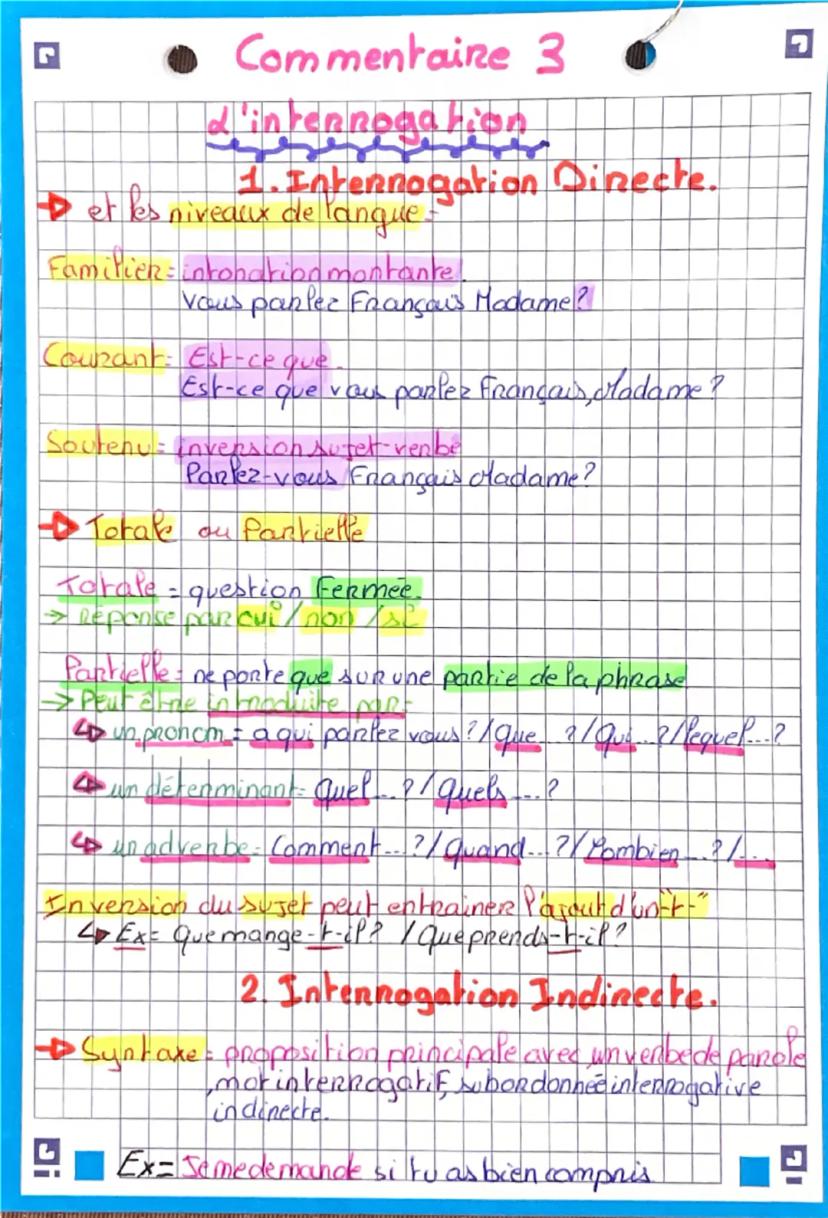 Commentaire 3
L'interrogation
1. Interrogation Directe.
et les niveaux de langue:
Familier: intonation montante.
Vous parlez Français Madame?
Courant: Est-ce que.
Est-ce que vous parlez Français, Madame?
Soutenu: inversion sujet-verbe
Parlez-vous Français Madame?
Totale ou Partielle
Totale = question Fermée.
→ Réponse par oui / non / si
Partielle: ne porte que sur une partie de la phrase
→ Peut être introduite par:
↳ un pronom: a qui parlez vous? / Que...? / Qui...? / lequel...?
↳ un déterminant: Quel...? / Quels....?
↳ un adverbe: Comment...? / Quand...? / Combien...? / ....
Inversion du sujet peut entrainer l'ajout d'un "-t-"
↳ Ex: Que mange-t-il? / Que prends-t-il?
2. Interrogation Indirecte.
Syntaxe: proposition principale avec un verbe de parole
, mot interrogatif, subordonnée interrogative
indirecte.
Ex= Je me demande si tu as bien compris